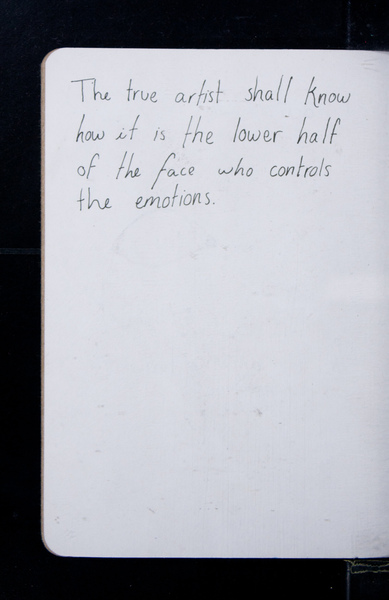 The true artist shall know
how it is the lower half
of the face who controls
the emotions.